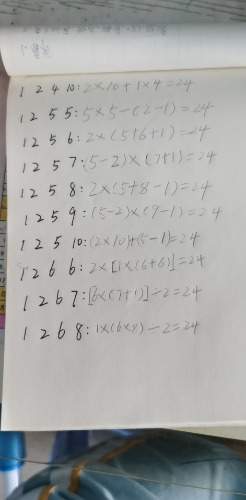 1 2 4 10: 2×10+1×4=24
1 2 5 5: 5×5-(2-1)=24
1 2 5 6: 2×(5+6+1)=24
1 2 5 7: (5-2)×(7+1)=24
1 2 5 8: 2×(5+8-1)=24
1 2 5 9: (5-2)×(9-1)=24
1 2 5 10: (2×10)+(5-1)=24
1 2 6 6: 2×[1×(6+6)]=24
1 2 6 7: [6×(7+1)]÷2=24
1 2 6 8: 1×(6×8)÷2=24